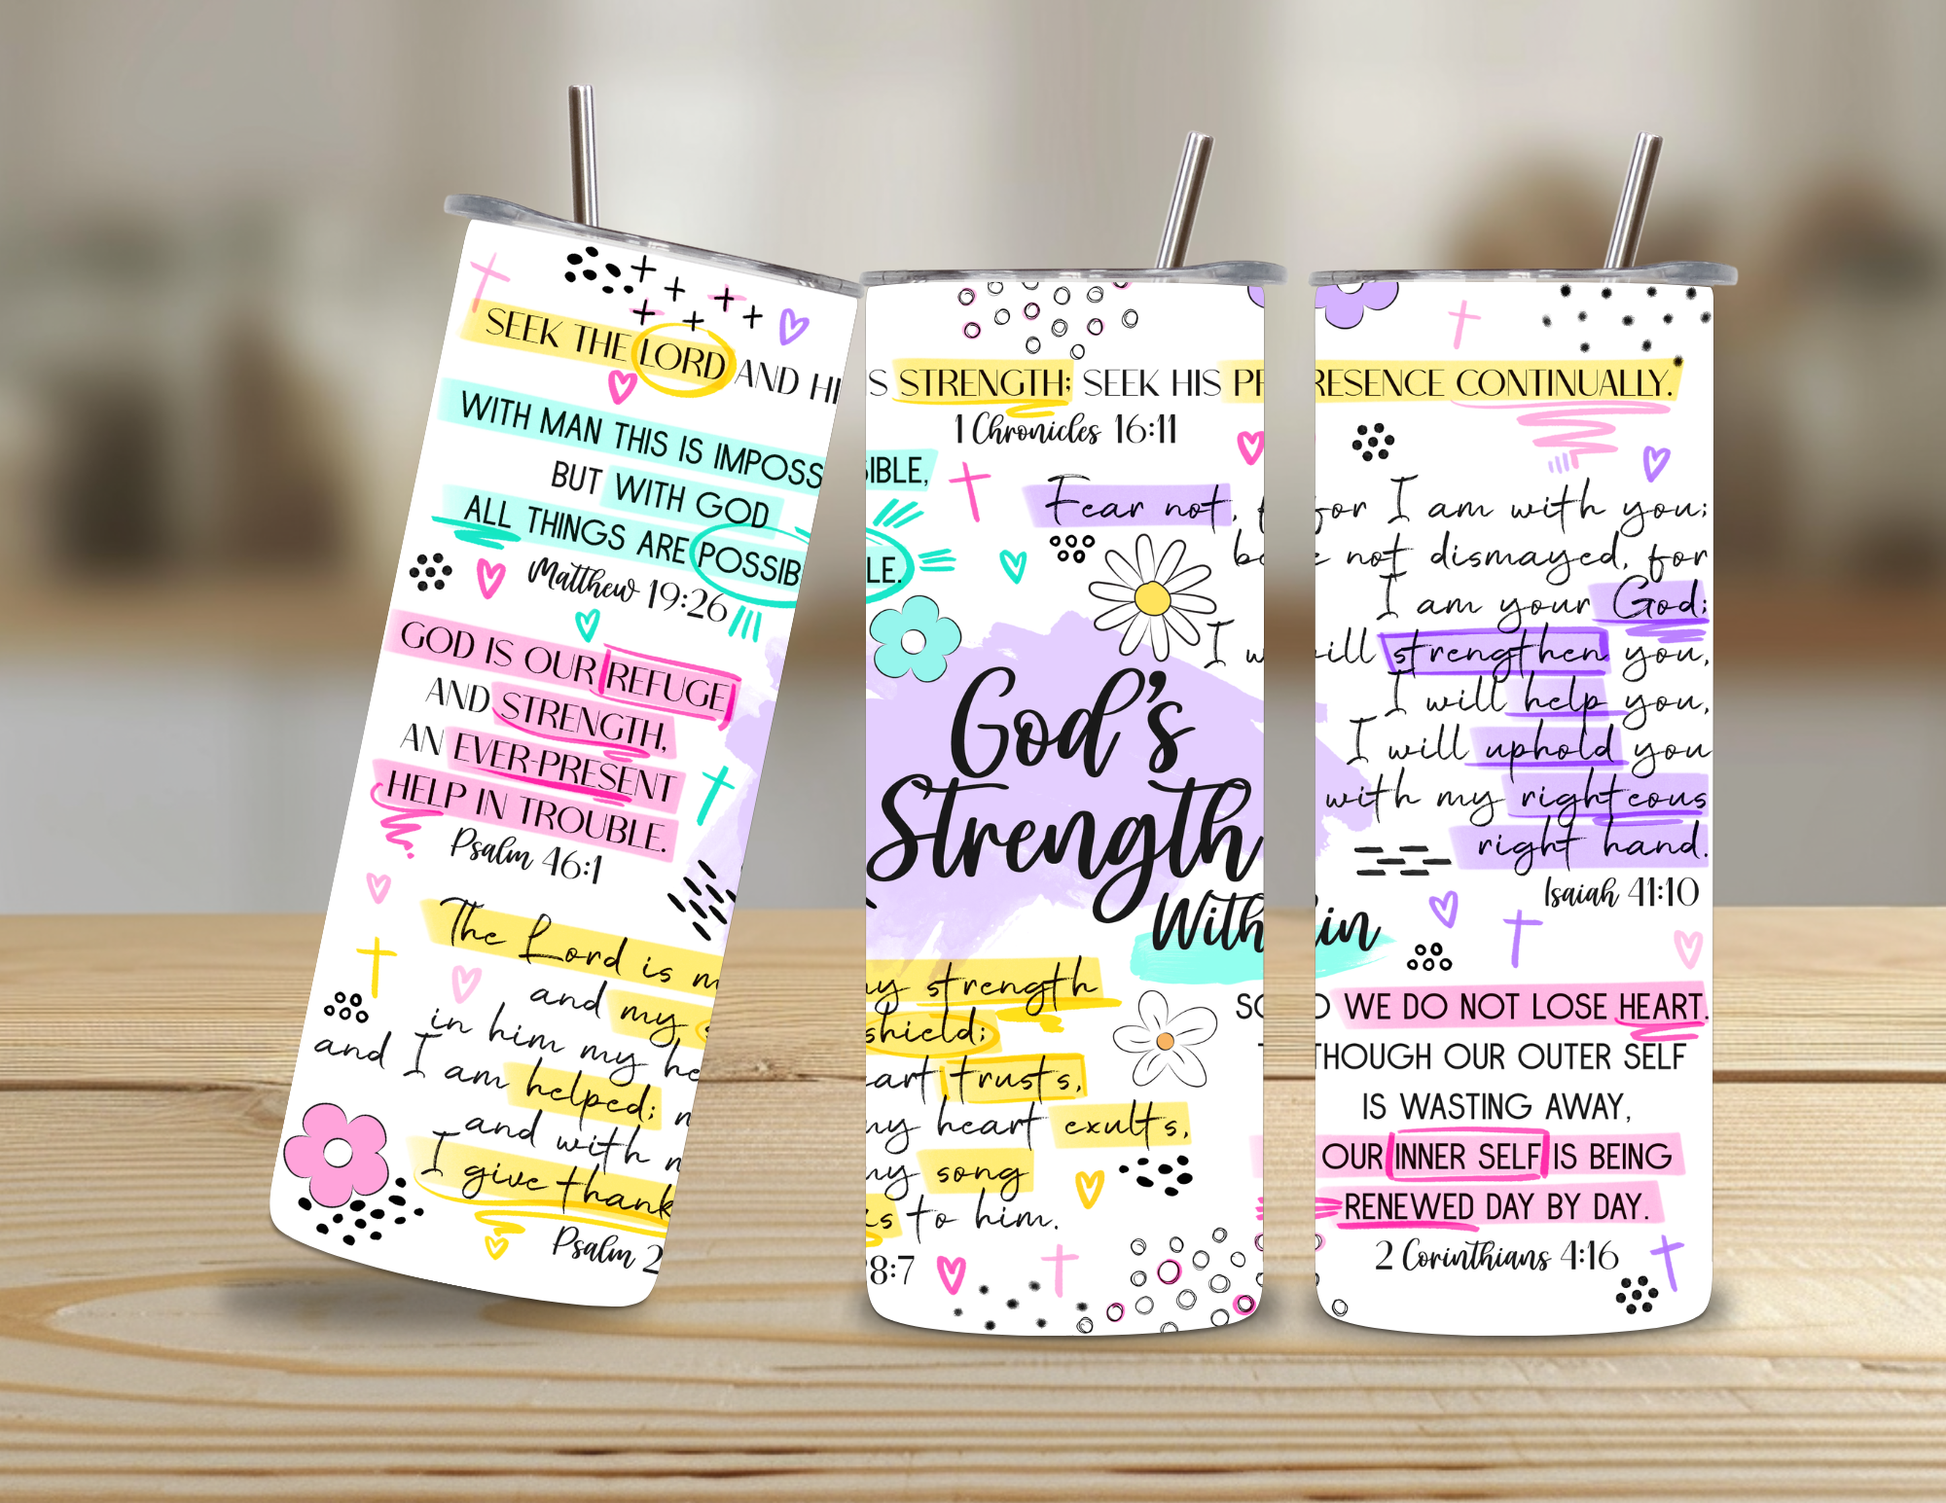 SEEK THE LORD AND HI
WITH MAN THIS IS IMPOSS
BUT WITH GOD
ALL THINGS ARE POSSIB
Matthew 19:26
GOD IS OUR REFUGE
AND STRENGTH,
AN EVER-PRESENT
HELP IN TROUBLE.
Psalm 46:1
The Lord is m
and my s
in him my he
and I am helped; m
and with m
I give thank
Psalm 2
S STRENGTH; SEEK HIS PR
1 Chronicles 16:11
SIBLE,
Fear not, f
be
LE.
I w
God's
Strength
With
my strength
shield;
SO
art trusts,
my heart exults,
my song
ks to him.
28:7
RESENCE CONTINUALLY.
for I am with you;
e not dismayed, for
I am your God;
will strengthen you,
I will help you,
I will uphold you
with my righteous
right hand.
Isaiah 41:10
in
O WE DO NOT LOSE HEART.
THOUGH OUR OUTER SELF
IS WASTING AWAY,
OUR INNER SELF IS BEING
RENEWED DAY BY DAY.
2 Corinthians 4:16